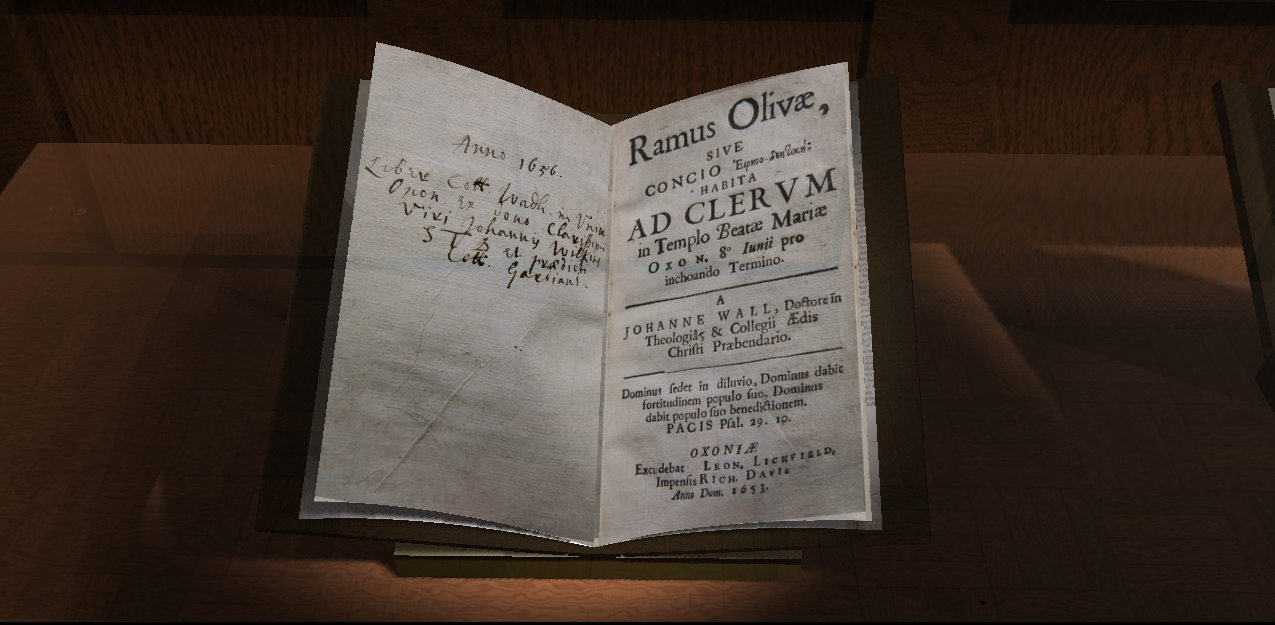 Anno 1656.
Liber Coll. Wadh. in Univ.
Oxon Ex dono Clarissimi
Viri Johannis Wilkins
S T P et prædicti
Coll. Gardiani.
Ramus Olivæ,
SIVE
CONCIO
HABITA
AD CLERVM
in Templo Beatæ Mariæ
OXON. 8º Iunii pro
inchoando Termino.
A
JOHANNE WALL, Doctore in
Theologiâ, & Collegii Ædis
Christi Præbendario.
Dominus sedet in diluvio, Dominus dabit
fortitudinem populo suo, Dominus
dabit populo suo benedictionem.
PACIS Psal. 29. 10.
OXONIÆ
Excudebat LEON. LICHFIELD,
Impensis RICH. DAVIS
Anno Dom. 1653.